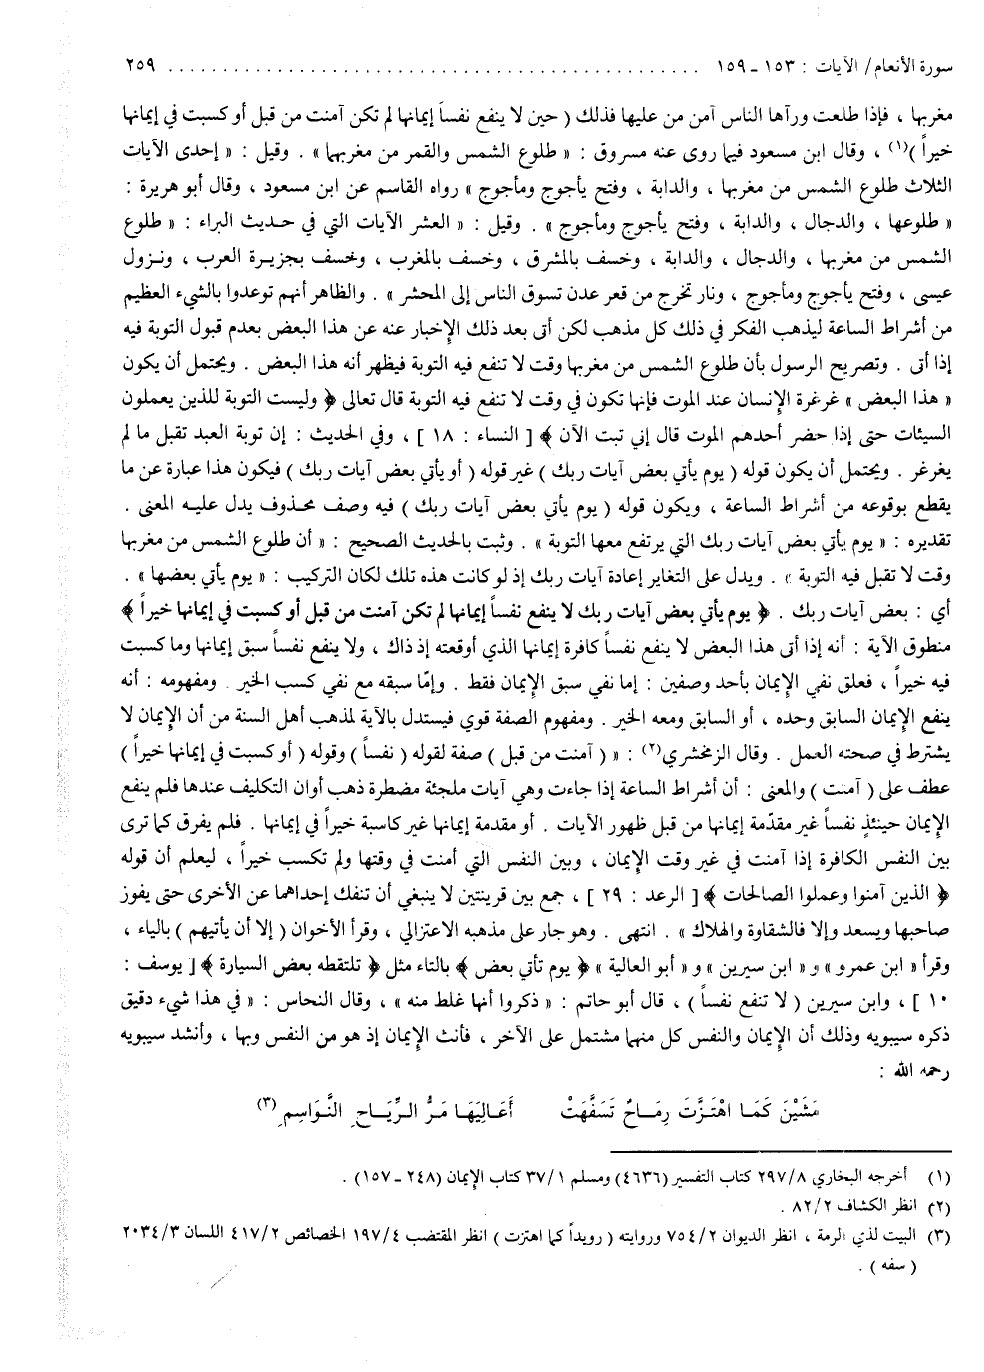 سورة الأنعام/ الآيات : ١٥٣ ـ ١٥٩ . . . . . . . . . . . . . . . . . . . . . . . . . . . . . . . . . . . . . . . . . . . . . . . . . ٢٥٩
مغربها ، فإذا طلعت ورآها الناس آمن من عليها فذلك ( حين لا ينفع نفساً إيمانها لم تكن آمنت من قبل أو كسبت في إيمانها
خيراً )(١) ، وقال ابن مسعود فيما روى عنه مسروق : « طلوع الشمس والقمر من مغربهما » . وقيل : « إحدى الآيات
الثلاث طلوع الشمس من مغربها ، والدابة ، وفتح يأجوج ومأجوج » رواه القاسم عن ابن مسعود ، وقال أبو هريرة :
« طلوعها ، والدجال ، والدابة ، وفتح يأجوج ومأجوج » . وقيل : « العشر الآيات التي في حديث البراء : « طلوع
الشمس من مغربها ، والدجال ، والدابة ، وخسف بالمشرق ، وخسف بالمغرب ، وخسف بجزيرة العرب ، ونزول
عيسى ، وفتح يأجوج ومأجوج ، ونار تخرج من قعر عدن تسوق الناس إلى المحشر » . والظاهر أنهم توعدوا بالشيء العظيم
من أشراط الساعة ليذهب الفكر في ذلك كل مذهب لكن أتى بعد ذلك الإخبار عنه عن هذا البعض بعدم قبول التوبة فيه
إذا أتى . وتصريح الرسول بأن طلوع الشمس من مغربها وقت لا تنفع فيه التوبة فيظهر أنه هذا البعض . ويحتمل أن يكون
« هذا البعض » غرغرة الإنسان عند الموت فإنها تكون في وقت لا تنفع فيه التوبة قال تعالى ﴿ وليست التوبة للذين يعملون
السيئات حتى إذا حضر أحدهم الموت قال إني تبت الآن ﴾ [ النساء : ١٨ ] ، وفي الحديث : إن توبة العبد تقبل ما لم
يغرغر . ويحتمل أن يكون قوله ( يوم يأتي بعض آيات ربك ) غير قوله ( أو يأتي بعض آيات ربك ) فيكون هذا عبارة عن ما
يقطع بوقوعه من أشراط الساعة ، ويكون قوله ( يوم يأتي بعض آيات ربك ) فيه وصف محذوف يدل عليه المعنى .
تقديره : « يوم يأتي بعض آيات ربك التي يرتفع معها التوبة » . وثبت بالحديث الصحيح : « أن طلوع الشمس من مغربها
وقت لا تقبل فيه التوبة » . ويدل على التغاير إعادة آيات ربك إذ لو كانت هذه تلك لكان التركيب : « يوم يأتي بعضها » .
أي : بعض آيات ربك . ﴿ يوم يأتي بعض آيات ربك لا ينفع نفساً إيمانها لم تكن آمنت من قبل أو كسبت في إيمانها خيراً ﴾
منطوق الآية : أنه إذا أتى هذا البعض لا ينفع نفساً كافرة إيمانها الذي أوقعته إذ ذاك ، ولا ينفع نفساً سبق إيمانها وما كسبت
فيه خيراً ، فعلق نفي الإيمان بأحد وصفين : إما نفي سبق الإيمان فقط . وإمّا سبقه مع نفي كسب الخير . ومفهومه : أنه
ينفع الإيمان السابق وحده ، أو السابق ومعه الخير . ومفهوم الصفة قوي فيستدل بالآية لمذهب أهل السنة من أن الإيمان لا
يشترط في صحته العمل . وقال الزمخشري(٢) : « ( آمنت من قبل ) صفة لقوله ( نفساً ) وقوله ( أو كسبت في إيمانها خيراً )
عطف على ( آمنت ) والمعنى : أن أشراط الساعة إذا جاءت وهي آيات ملجئة مضطرة ذهب أوان التكليف عندها فلم ينفع
الإيمان حينئذٍ نفساً غير مقدّمة إيمانها من قبل ظهور الآيات . أو مقدمة إيمانها غير كاسبة خيراً في إيمانها . فلم يفرق كما ترى
بين النفس الكافرة إذا آمنت في غير وقت الإيمان ، وبين النفس التي أمنت في وقتها ولم تكسب خيراً ، ليعلم أن قوله
﴿ الذين آمنوا وعملوا الصالحات ﴾ [ الرعد : ٢٩ ] ، جمع بين قرينتين لا ينبغي أن تنفك إحداهما عن الأخرى حتى يفوز
صاحبها ويسعد وإلا فالشقاوة والهلاك » . انتهى . وهو جار على مذهبه الاعتزالي ، وقرأ الأخوان ( إلا أن يأتيهم ) بالياء ،
وقرأ « ابن عمرو » و« ابن سيرين » و« أبو العالية » ﴿ يوم تأتي بعض ﴾ بالتاء مثل ﴿ تلتقطه بعض السيارة ﴾ [ يوسف :
١٠ ] ، وابن سيرين ( لا تنفع نفساً ) ، قال أبو حاتم : « ذكروا أنها غلط منه » ، وقال النحاس : « في هذا شيء دقيق
ذكره سيبويه وذلك أن الإيمان والنفس كل منهما مشتمل على الآخر ، فأنث الإيمان إذ هو من النفس وبها ، وأنشد سيبويه
رحمه الله :
مَشَيْنَ كَمَا اهْتَزَّتْ رِمَاحٌ تَسَفَّهَتْ أَعَالِيَهَا مَرُّ الرِّيَاحِ النَّوَاسِمِ(٣)
(١) أخرجه البخاري ٢٩٧/٨ كتاب التفسير (٤٦٣٦) ومسلم ٣٧/١ كتاب الإيمان (٢٤٨ ـ ١٥٧) .
(٢) انظر الكشاف ٨٢/٢ .
(٣) البيت لذي الرمة ، انظر الديوان ٧٥٤/٢ وروايته ( رويداً كما اهتزت ) انظر المقتضب ١٩٧/٤ الخصائص ٤١٧/٢ اللسان ٢٠٣٤/٣
( سفه ) .